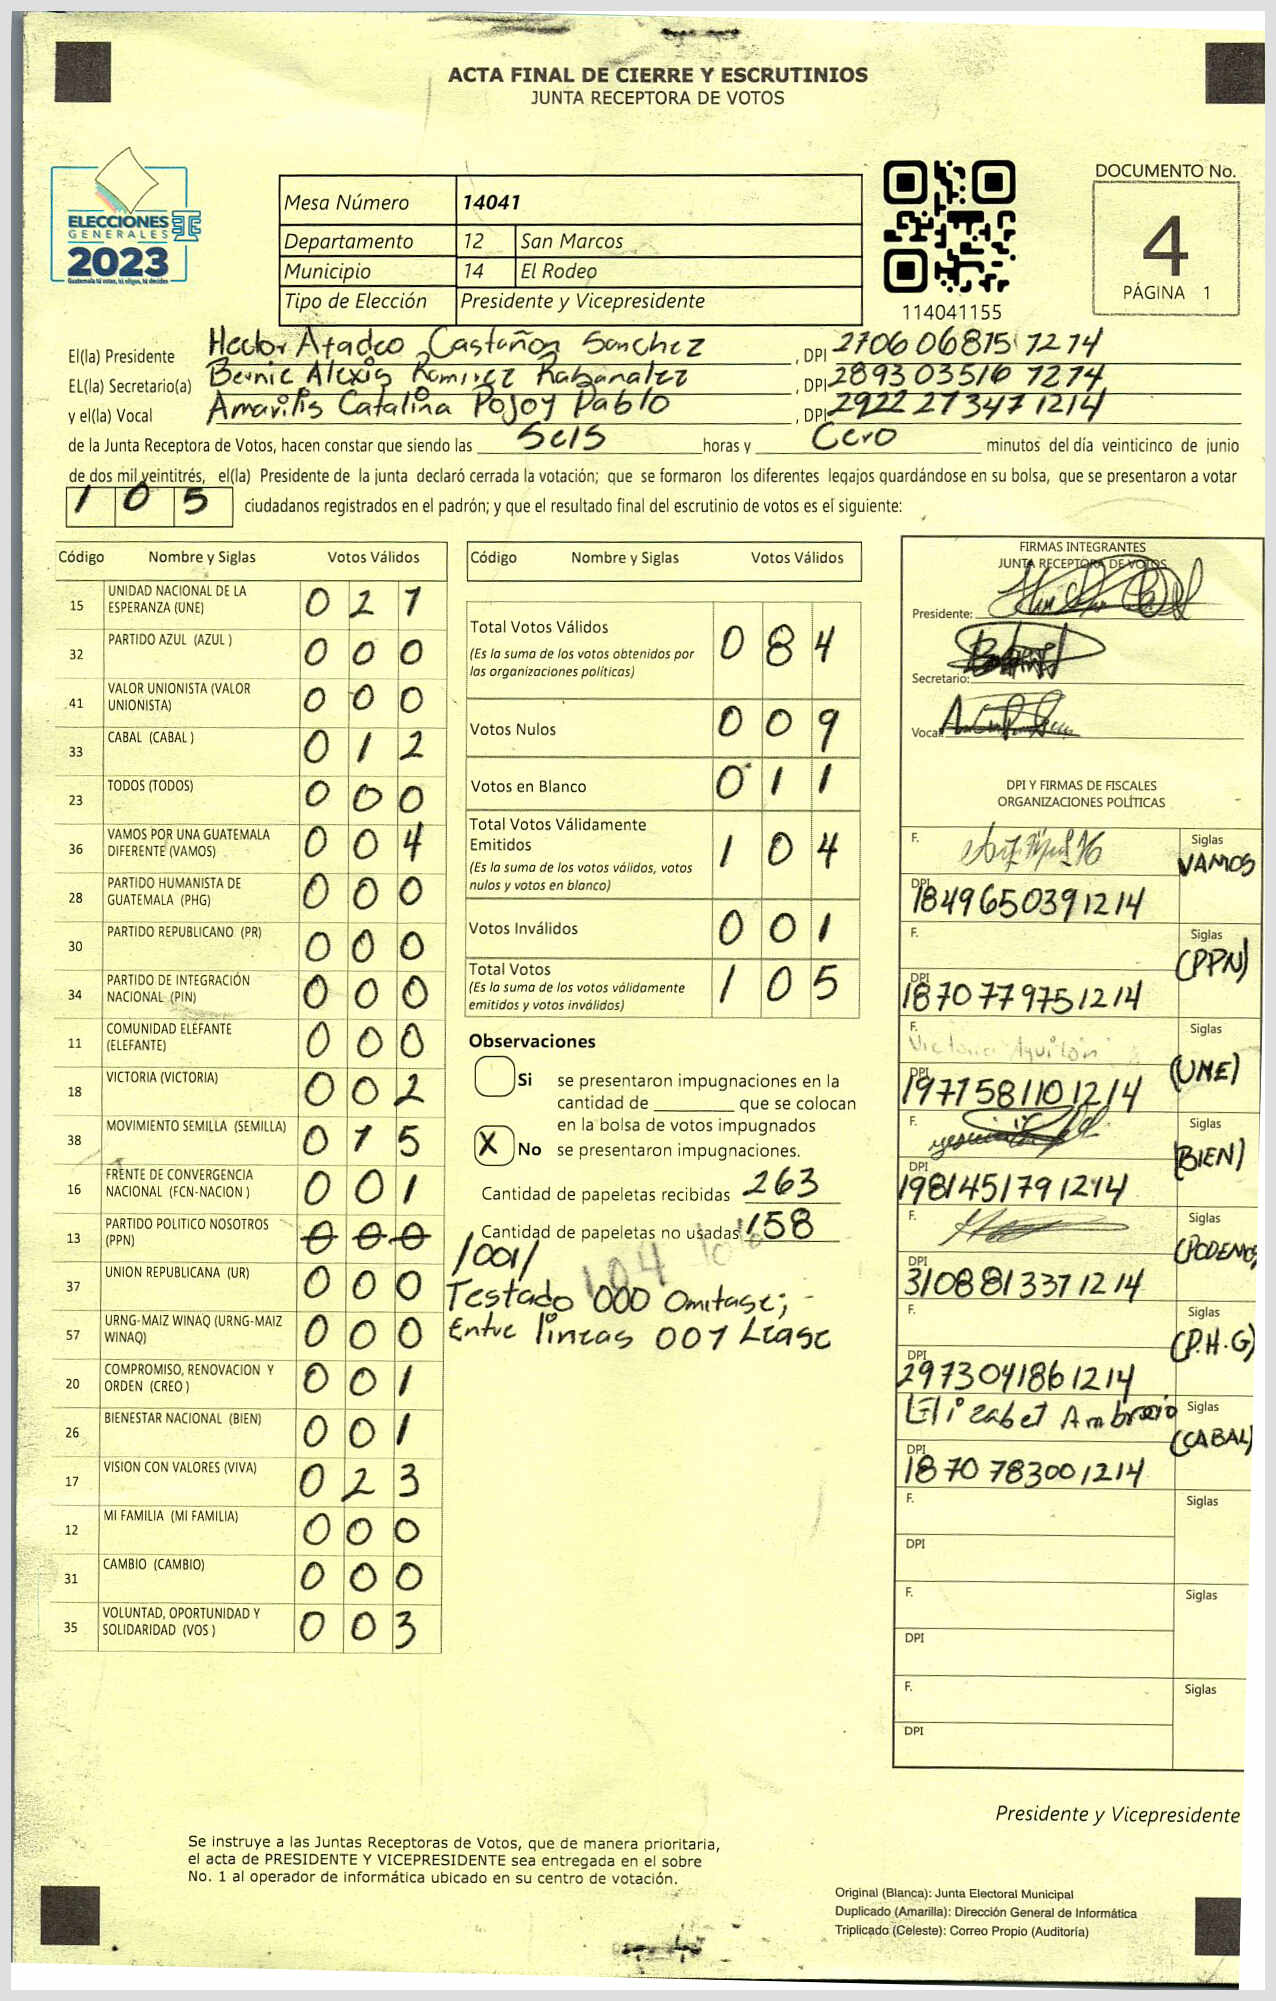 ACTA FINAL DE CIERRE Y ESCRUTINIOS
JUNTA RECEPTORA DE VOTOS
ELECCIONES
GENERALES
2023
Guatemala tú votas, tú eliges, tú decides
Mesa Número 14041
Departamento 12 San Marcos
Municipio 14 El Rodeo
Tipo de Elección Presidente y Vicepresidente
114041155
DOCUMENTO No.
4
PÁGINA 1
El(la) Presidente Hector Atadeo Castañon Sanchez, DPI 2706 06815 1214
EL(la) Secretario(a) Bernie Alexis Ramirez Rabanalez, DPI 2893 03516 1214
y el(la) Vocal Amarilis Catalina Pojoy Pablo, DPI 2922 27347 1214
de la Junta Receptora de Votos, hacen constar que siendo las Seis horas y Cero minutos del día veinticinco de junio
de dos mil veintitrés, el(la) Presidente de la junta declaró cerrada la votación; que se formaron los diferentes legajos guardándose en su bolsa, que se presentaron a votar
105 ciudadanos registrados en el padrón; y que el resultado final del escrutinio de votos es el siguiente:
Código Nombre y Siglas Votos Válidos
15 UNIDAD NACIONAL DE LA ESPERANZA (UNE) 0 2 1
32 PARTIDO AZUL (AZUL ) 0 0 0
41 VALOR UNIONISTA (VALOR UNIONISTA) 0 0 0
33 CABAL (CABAL ) 0 1 2
23 TODOS (TODOS) 0 0 0
36 VAMOS POR UNA GUATEMALA DIFERENTE (VAMOS) 0 0 4
28 PARTIDO HUMANISTA DE GUATEMALA (PHG) 0 0 0
30 PARTIDO REPUBLICANO (PR) 0 0 0
34 PARTIDO DE INTEGRACIÓN NACIONAL (PIN) 0 0 0
11 COMUNIDAD ELEFANTE (ELEFANTE) 0 0 0
18 VICTORIA (VICTORIA) 0 0 2
38 MOVIMIENTO SEMILLA (SEMILLA) 0 1 5
16 FRENTE DE CONVERGENCIA NACIONAL (FCN-NACION ) 0 0 1
13 PARTIDO POLITICO NOSOTROS (PPN) 0 0 0 /001/
37 UNION REPUBLICANA (UR) 0 0 0
57 URNG-MAIZ WINAQ (URNG-MAIZ WINAQ) 0 0 0
20 COMPROMISO, RENOVACION Y ORDEN (CREO ) 0 0 1
26 BIENESTAR NACIONAL (BIEN) 0 0 1
17 VISION CON VALORES (VIVA) 0 2 3
12 MI FAMILIA (MI FAMILIA) 0 0 0
31 CAMBIO (CAMBIO) 0 0 0
35 VOLUNTAD, OPORTUNIDAD Y SOLIDARIDAD (VOS ) 0 0 3
Código Nombre y Siglas Votos Válidos
Total Votos Válidos 0 8 4
(Es la suma de los votos obtenidos por
las organizaciones políticas)
Votos Nulos 0 0 9
Votos en Blanco 0 1 1
Total Votos Válidamente
Emitidos 1 0 4
(Es la suma de los votos válidos, votos
nulos y votos en blanco)
Votos Inválidos 0 0 1
Total Votos 1 0 5
(Es la suma de los votos válidamente
emitidos y votos inválidos)
Observaciones
Si se presentaron impugnaciones en la
cantidad de ________ que se colocan
en la bolsa de votos impugnados
X No se presentaron impugnaciones.
Cantidad de papeletas recibidas 263
Cantidad de papeletas no usadas 158
104
Testado 000 Omitase;
Entre lineas 001 Lease
FIRMAS INTEGRANTES
JUNTA RECEPTORA DE VOTOS
Presidente:
Secretario:
Vocal
DPI Y FIRMAS DE FISCALES
ORGANIZACIONES POLÍTICAS
F. Siglas VAMOS
DPI 1849650391214
F. Siglas (PPN)
DPI 1870779751214
F. Victoria Aguilón Siglas (UNE)
DPI 1977581101214
F. Siglas (BIEN)
DPI 1981451791214
F. Siglas (PODEMOS)
DPI 3108813371214
F. Siglas (P.H.G)
DPI 2973041861214
F. Elizabet Ambrocio Siglas (CABAL)
DPI 1870783001214
F. Siglas
DPI
F. Siglas
DPI
F. Siglas
DPI
Presidente y Vicepresidente
Se instruye a las Juntas Receptoras de Votos, que de manera prioritaria,
el acta de PRESIDENTE Y VICEPRESIDENTE sea entregada en el sobre
No. 1 al operador de informática ubicado en su centro de votación.
Original (Blanca): Junta Electoral Municipal
Duplicado (Amarilla): Dirección General de Informática
Triplicado (Celeste): Correo Propio (Auditoría)